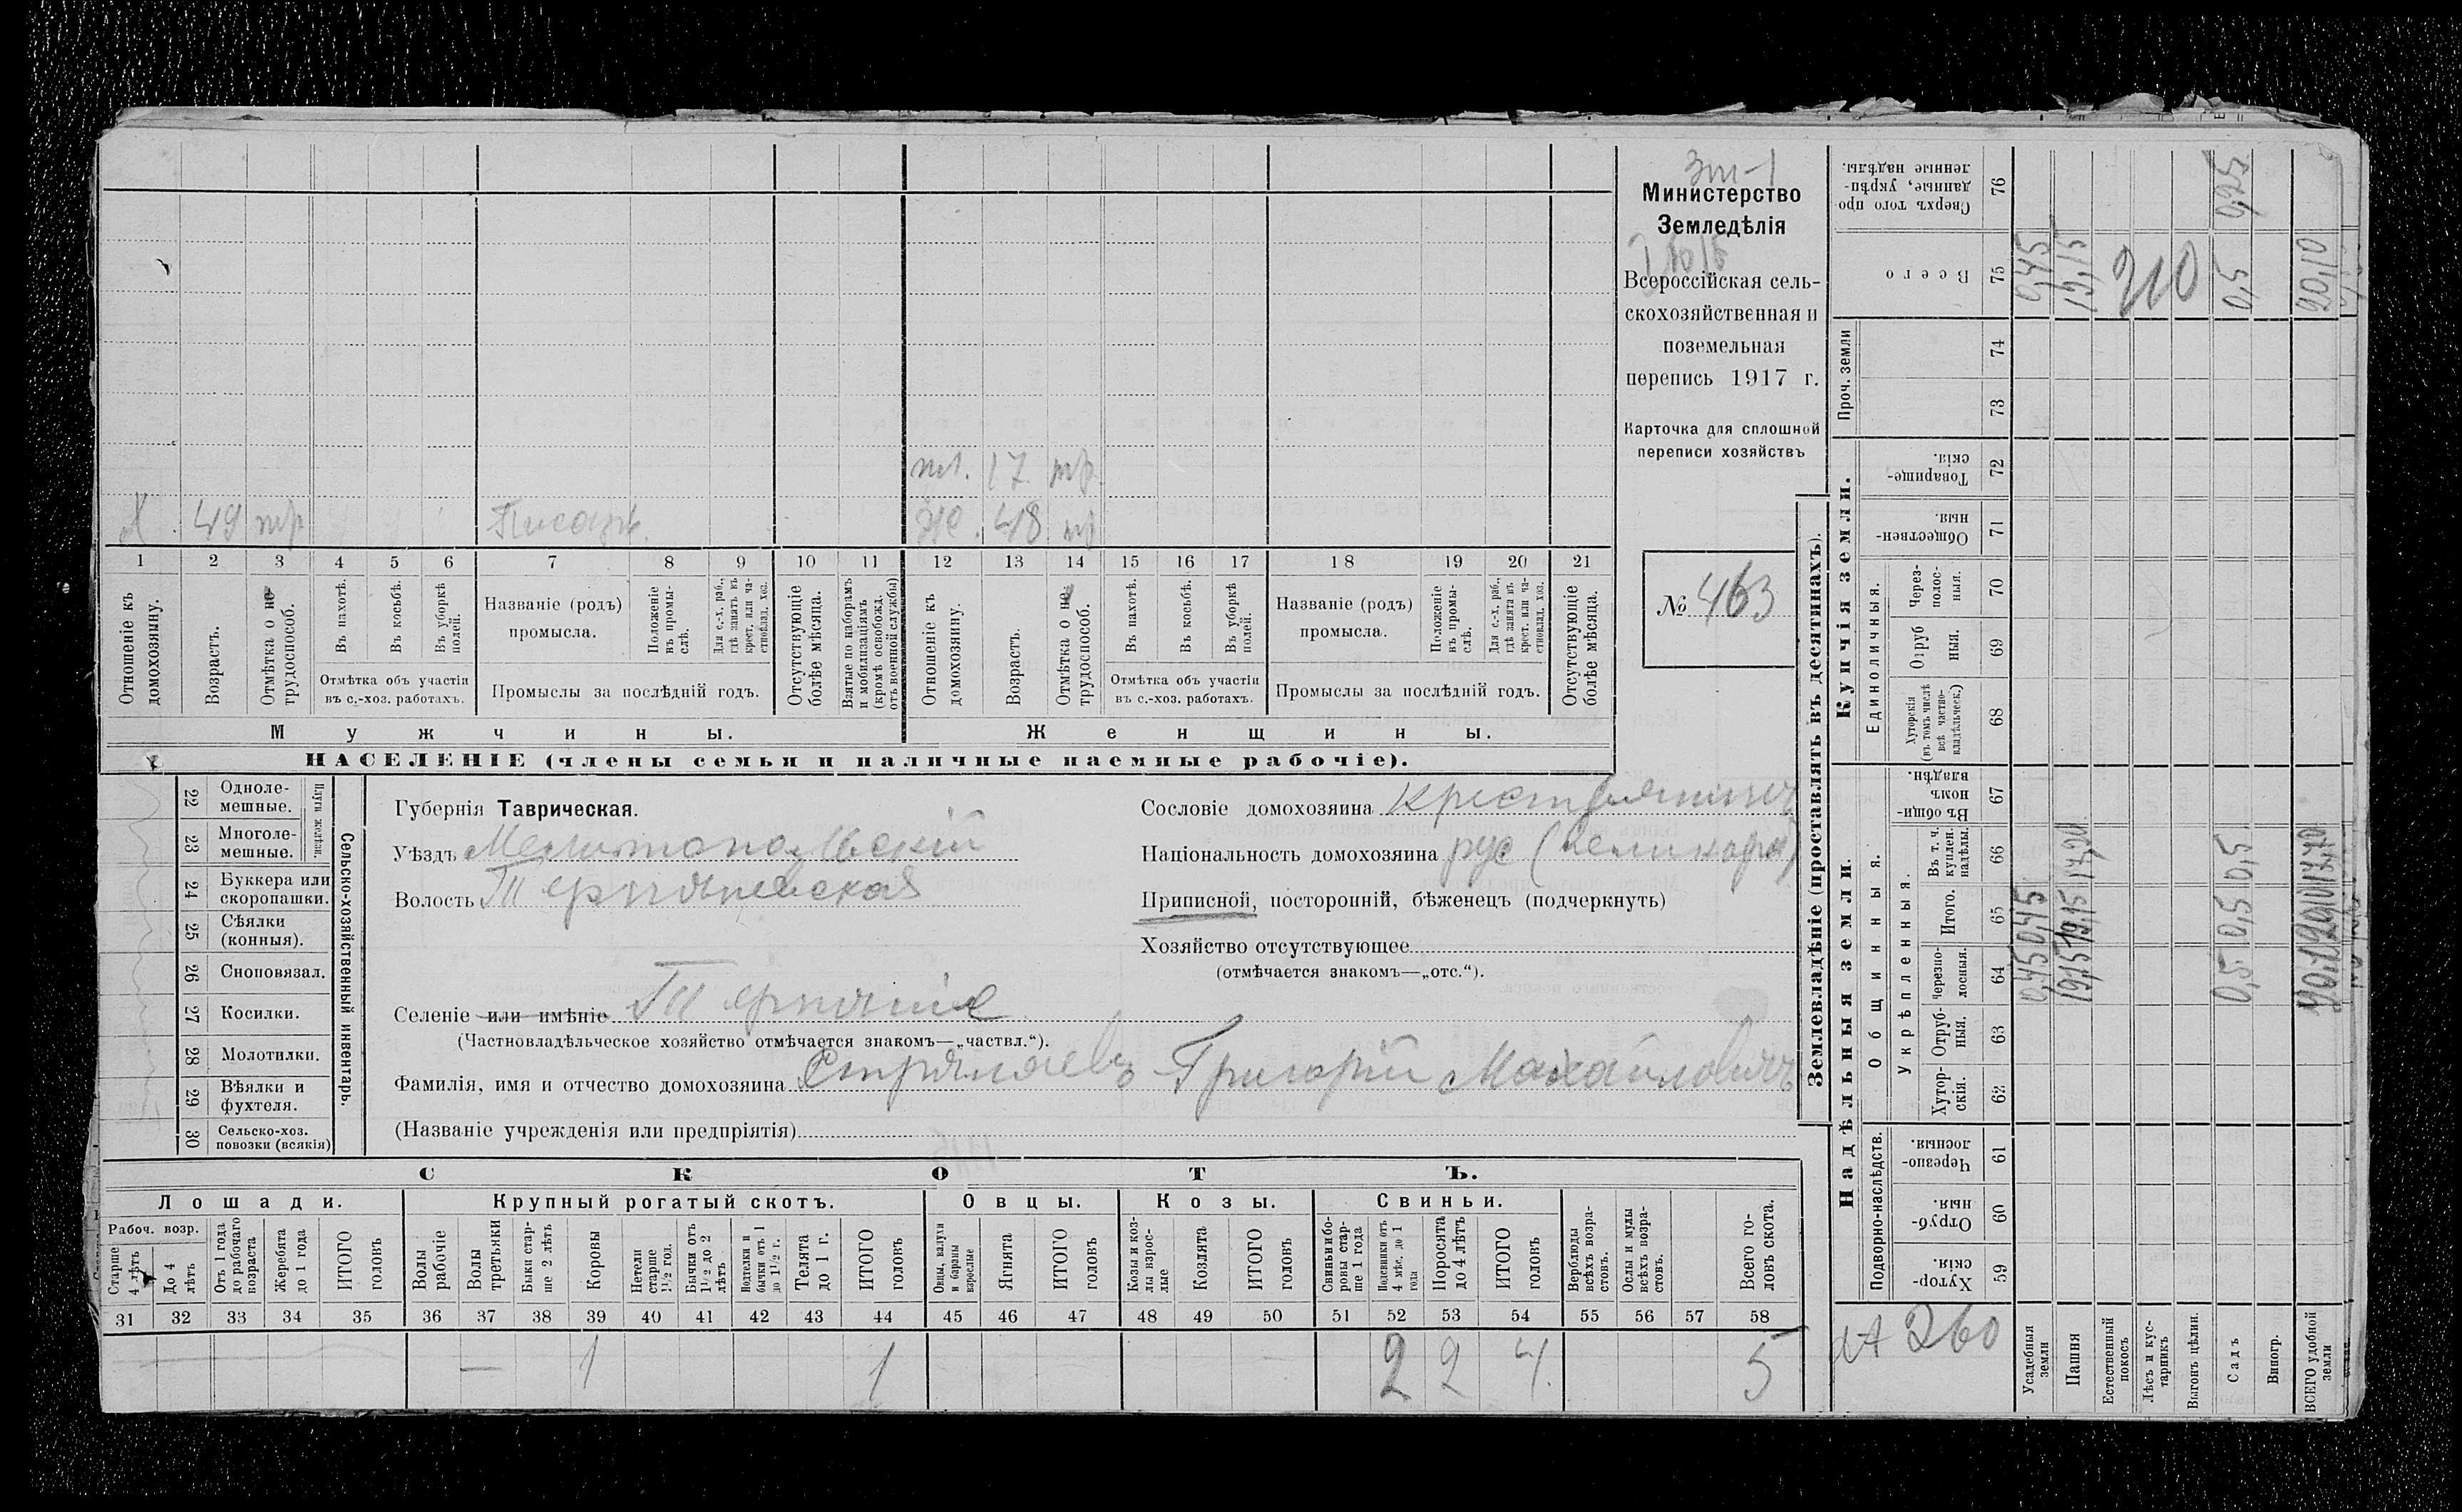 Министерство
Земледѣлія
Всероссійская сель-
скохозяйственная и
поземельная
перепись 1917 г.
Карточка для сплошной
переписи хозяйствъ
№ 463
пл. 17 тр.
Х 49 тр Писарь. Же. 48 тр
1 2 3 4 5 6 7 8 9 10 11 12 13 14 15 16 17 18 19 20 21
Отношеніе къ домохозяину.
Возрастъ.
Отмѣтка о не трудоспособ.
Въ пахотѣ.
Въ косьбѣ.
Въ уборкѣ полей.
Отмѣтка объ участіи
въ с.-хоз. работахъ.
Названіе (родъ)
промысла.
Положеніе въ промы-слѣ.
Для с.-х. раб., гдѣ занятъ въ крест. или ча-стновлад. хоз.
Промыслы за послѣдній годъ.
Отсутствующіе болѣе мѣсяца.
Взятые по наборамъ и мобилизаціямъ (кромѣ освобожд. отъ военной службы)
Отношеніе къ домохозяину.
Возрастъ.
Отмѣтка о не трудоспособ.
Въ пахотѣ.
Въ косьбѣ.
Въ уборкѣ полей.
Отмѣтка объ участіи
въ с.-хоз. работахъ.
Названіе (родъ)
промысла.
Положеніе въ промы-слѣ.
Для с.-х. раб., гдѣ занята въ крест. или ча-стновлад. хоз.
Промыслы за послѣдній годъ.
Отсутствующіе болѣе мѣсяца.
Мужчины. Женщины.
НАСЕЛЕНІЕ (члены семьи и наличные наемные рабочіе).
Сельско-хозяйственный инвентарь.
Плуги желѣзн.
22 Одноле-мешные.
23 Многоле-мешные.
24 Буккера или скоропашки.
25 Сѣялки (конныя).
26 Сноповязал.
27 Косилки.
28 Молотилки.
29 Вѣялки и фухтеля.
30 Сельско-хоз. повозки (всякія)
Губернія Таврическая.
Уѣздъ Мелитопольскій
Волость Терпѣньевская
Селеніе или имѣніе Терпѣніе
(Частновладѣльческое хозяйство отмѣчается знакомъ—„частвл.“).
Фамилія, имя и отчество домохозяина Стрѣляевъ Григорій Михайловичъ
(Названіе учрежденія или предпріятія)
Сословіе домохозяина крестьянинъ
Національность домохозяина рус (великорл)
Приписной, посторонній, бѣженецъ (подчеркнуть)
Хозяйство отсутствующее
(отмѣчается знакомъ—„отс.“).
СКОТЪ.
Лошади. Крупный рогатый скотъ. Овцы. Козы. Свиньи.
Рабоч. возр.
Старше 4 лѣтъ
До 4 лѣтъ
Отъ 1 года до рабочаго возраста
Жеребята до 1 года
ИТОГО головъ
Волы рабочіе
Волы третьяки
Быки стар-ше 2 лѣтъ
Коровы
Нетели старше 1½ гол.
Бычки отъ 1½ до 2 лѣтъ
Нетелки и бычки отъ 1 до 1½ г.
Телята до 1 г.
ИТОГО головъ
Овцы, валухи и бараны взрослые
Ягнята
ИТОГО головъ
Козы и коз-лы взрос-лые
Козлята
ИТОГО головъ
Свиньи и бо-ровы стар-ше 1 года
Подсвинки отъ 4 мѣс. до 1 года
Поросята до 4 лѣтъ
ИТОГО головъ
Верблюды всѣхъ возра-стовъ.
Ослы и мулы всѣхъ возра-стовъ.
Всего го-ловъ скота.
31 32 33 34 35 36 37 38 39 40 41 42 43 44 45 46 47 48 49 50 51 52 53 54 55 56 57 58
— 1 1 2 2 4 5
Землевладѣніе (проставлять въ десятинахъ).
Надѣльныя земли.
Подворно-наслѣдств.
Хутор-скія. 59
Отруб-ныя. 60
Черезпо-лосныя. 61
Общинныя.
Укрѣпленныя.
Хутор-скія. 62
Отруб-ныя. 63
Черезпо-лосныя. 64
Итого. 65
Въ т. ч. куплен. надѣлы. 66
Въ общи-номъ владѣн. 67
Купчія земли.
Единоличныя.
Хуторскія (въ томъ числѣ всѣ частно-владѣльческ.) 68
Отруб ныя. 69
Через-полос-ныя. 70
Обществен-ныя. 71
Товарище-скія. 72
Проч. земли
73
74
Всего 75
Сверхъ того про-данные, укрѣп-ленные надѣлы. 76
260
Усадебныя земли 0,45 0,45 0,45
Пашня 19,15 19,15 19,15
Естественный покосъ
Лѣсъ и кус-тарникъ
Выгонъ цѣлин.
210
Садъ 0,5 0,5 0,5 0,5 0,25
Виногр.
ВСЕГО удобной земли 20,10